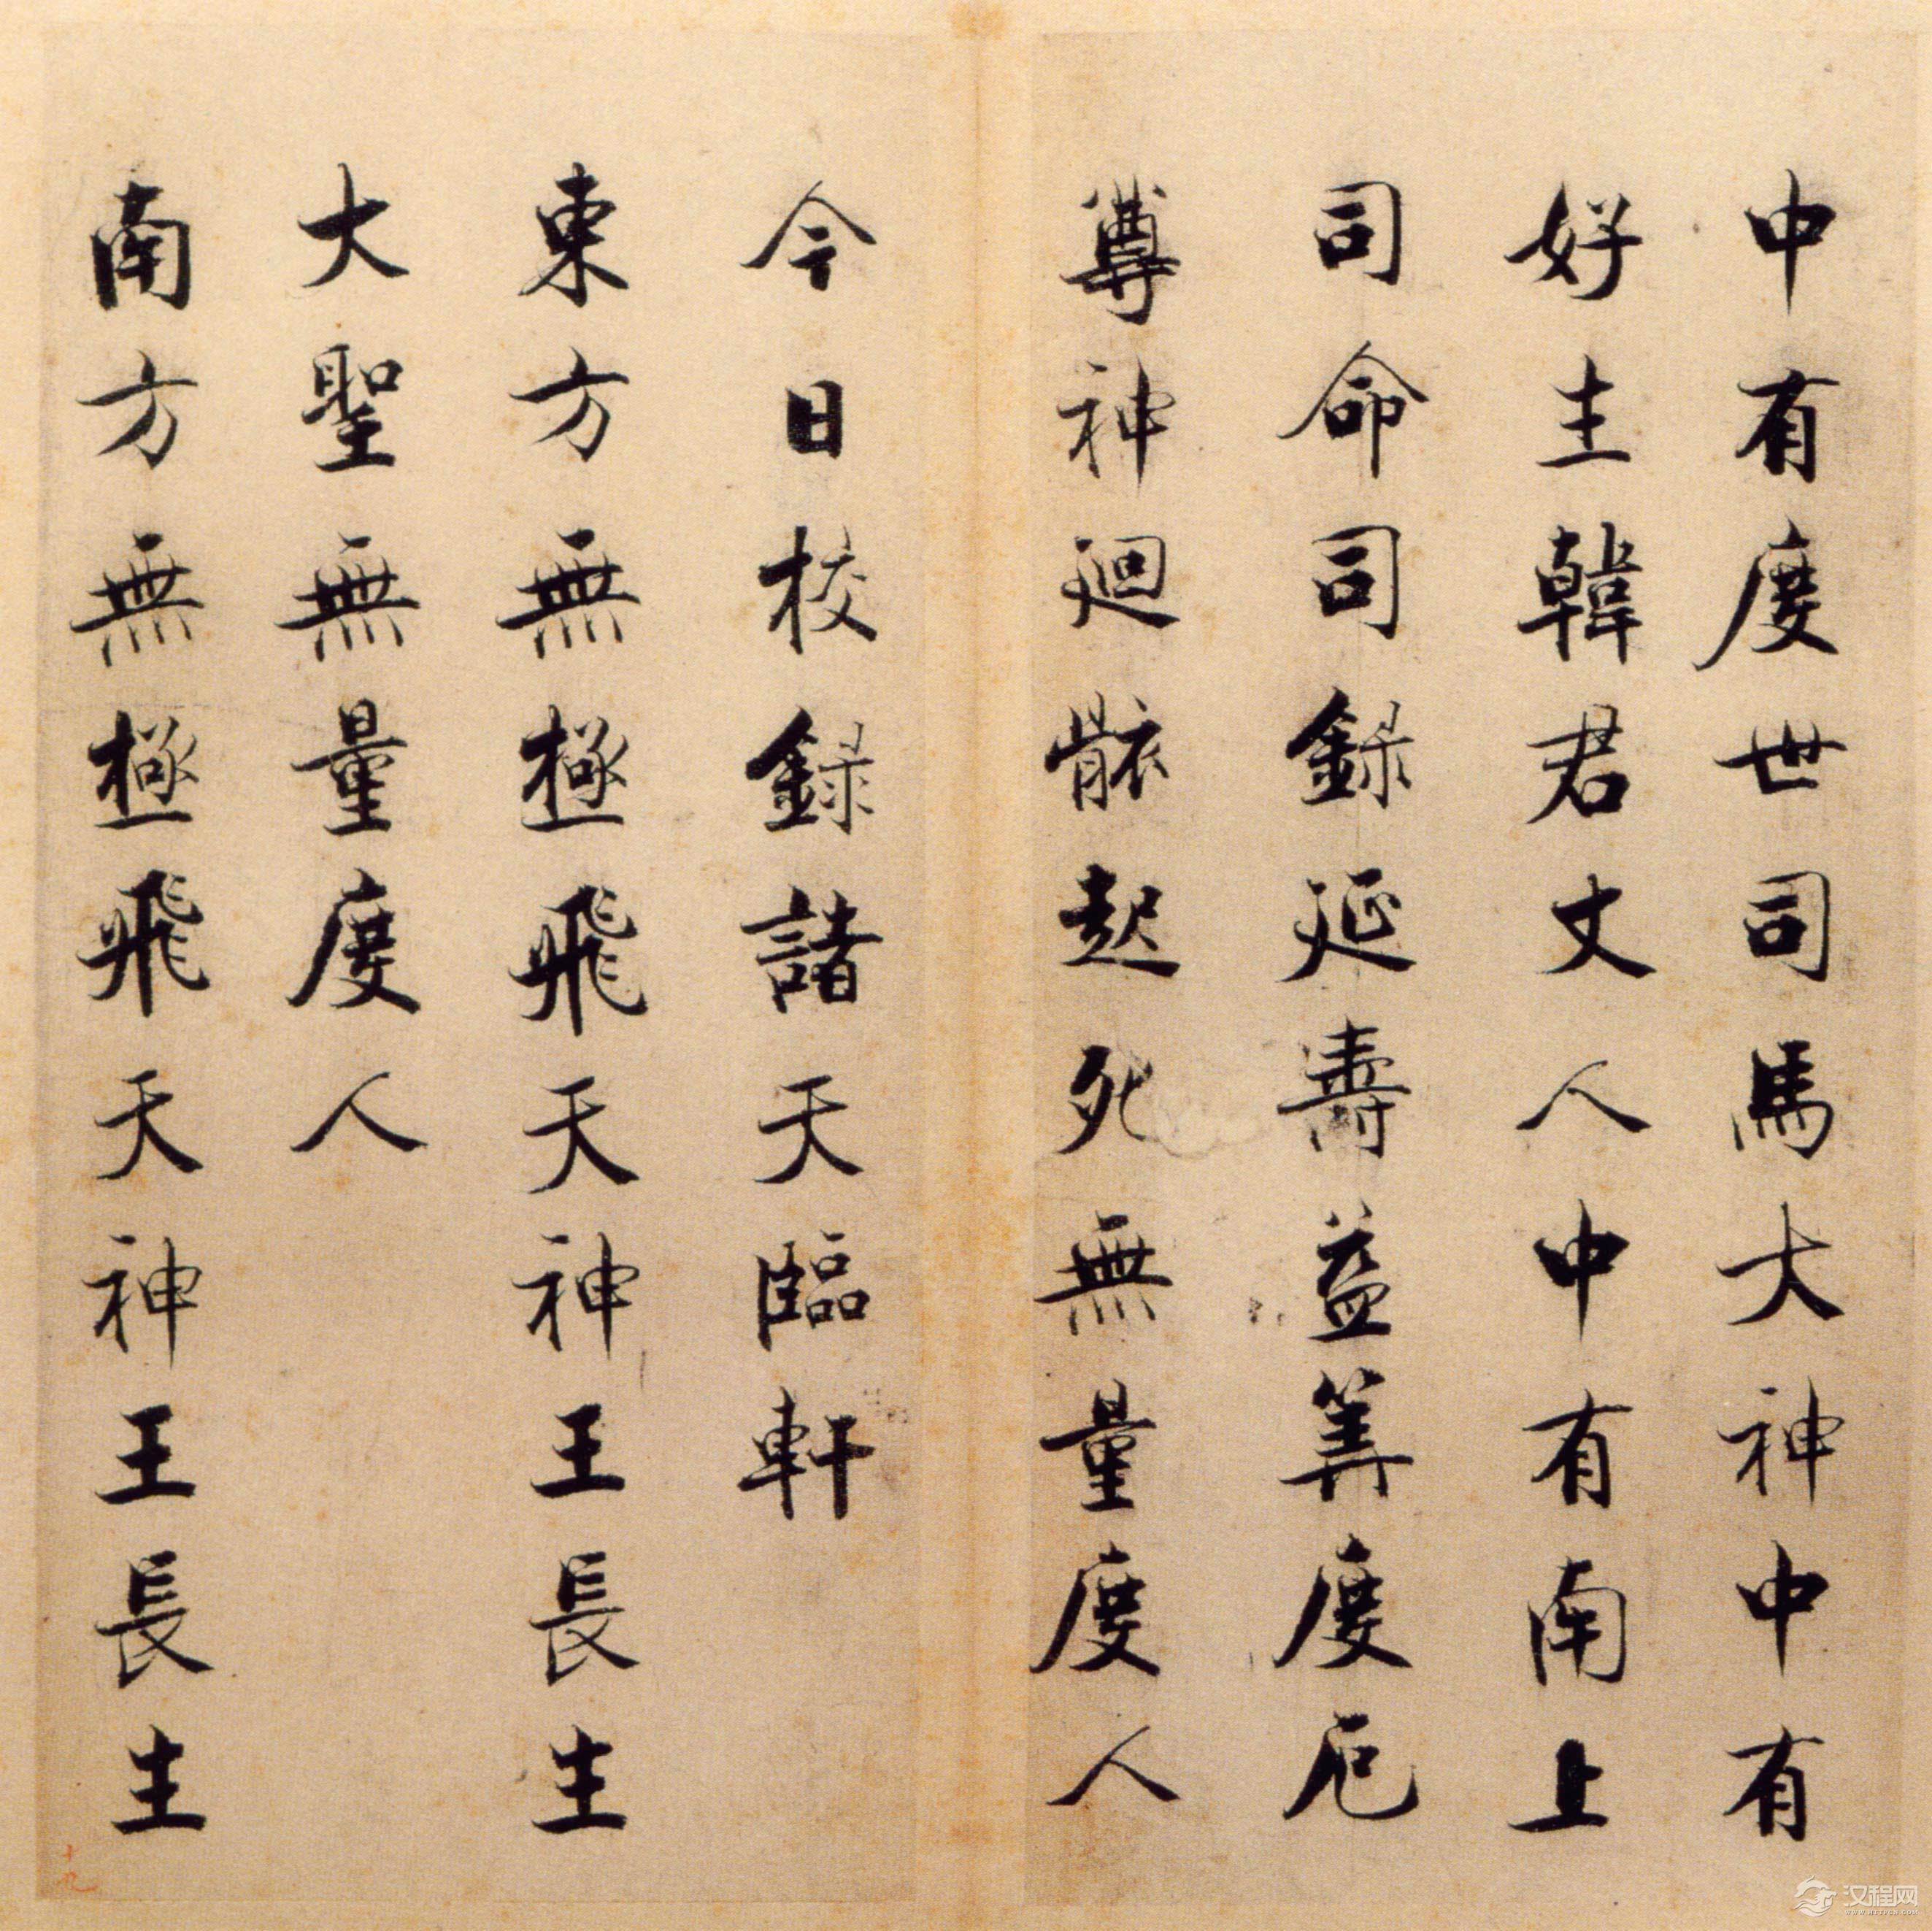 中有度世司馬大神中有
好生韓君丈人中有南上
司命司録延壽益筭度厄
尊神迴骸起死無量度人
今日校録諸天臨軒
東方無極飛天神王長生
大聖無量度人
南方無極飛天神王長生
十九
汉程网
WWW.HTTPCN.COM